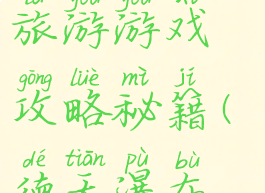 lǚ yóu yóu xì
旅游游戏
gōng lüè mì jí
攻略秘籍(
dé tiān pù bù
德天瀑布